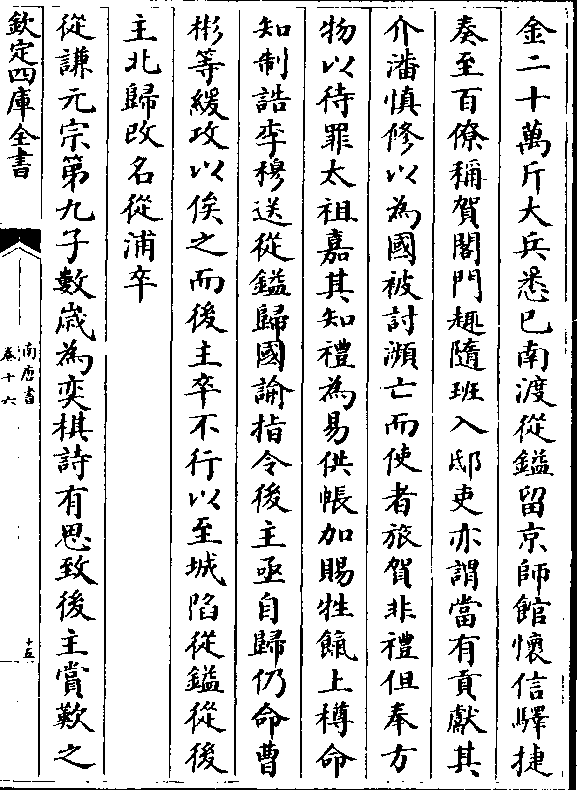 金二十萬斤大兵悉已南渡從鎰留京師館懷信驛捷
奏至百僚稱賀閤門趣隨班入邸吏亦謂當有貢獻其
介潘慎修以為國被討瀕亡而使者旅賀非禮但奉方
物以待罪太祖嘉其知禮為易供帳加賜牲餼上樽命
知制誥李穆送從鎰歸國諭指令後主亟自歸仍命曹
彬等緩攻以俟之而後主卒不行以至城陷從鎰從後
主北歸改名從浦卒
從謙元宗第九子數歲為奕棋詩有思致後主賞歎之
欽定四庫全書
南唐書
卷十六
十五